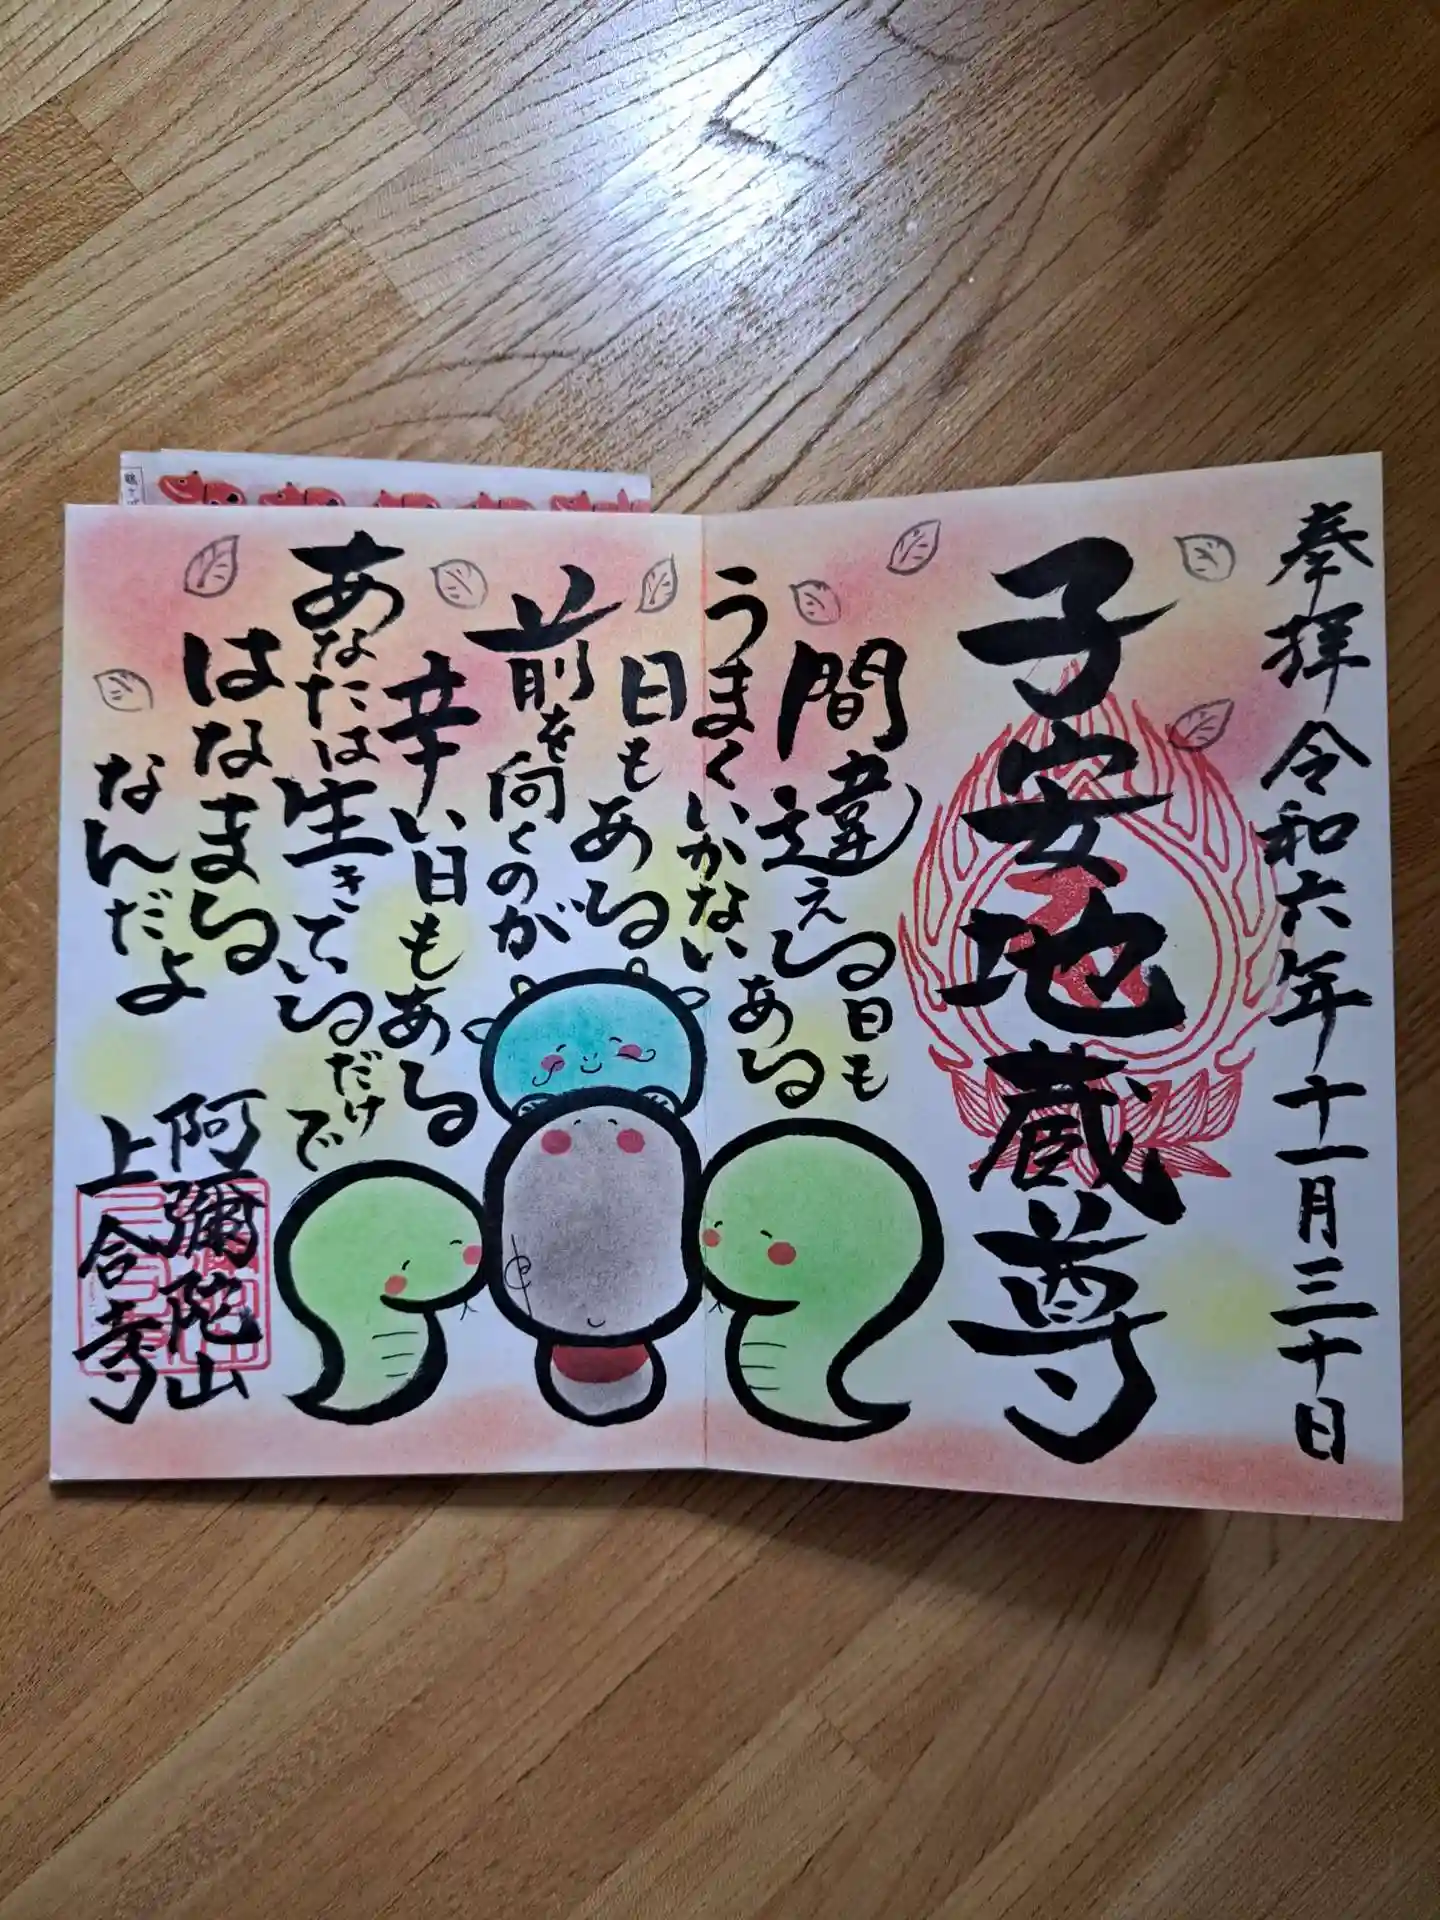 奉拝 令和六年十一月三十日
子安地蔵尊
間違える日も
うまくいかない
ある
日もある
前を向くのが
辛い日もある
あなたは生きているだけで
はなまる
なんだよ
阿彌陀山
上合寺